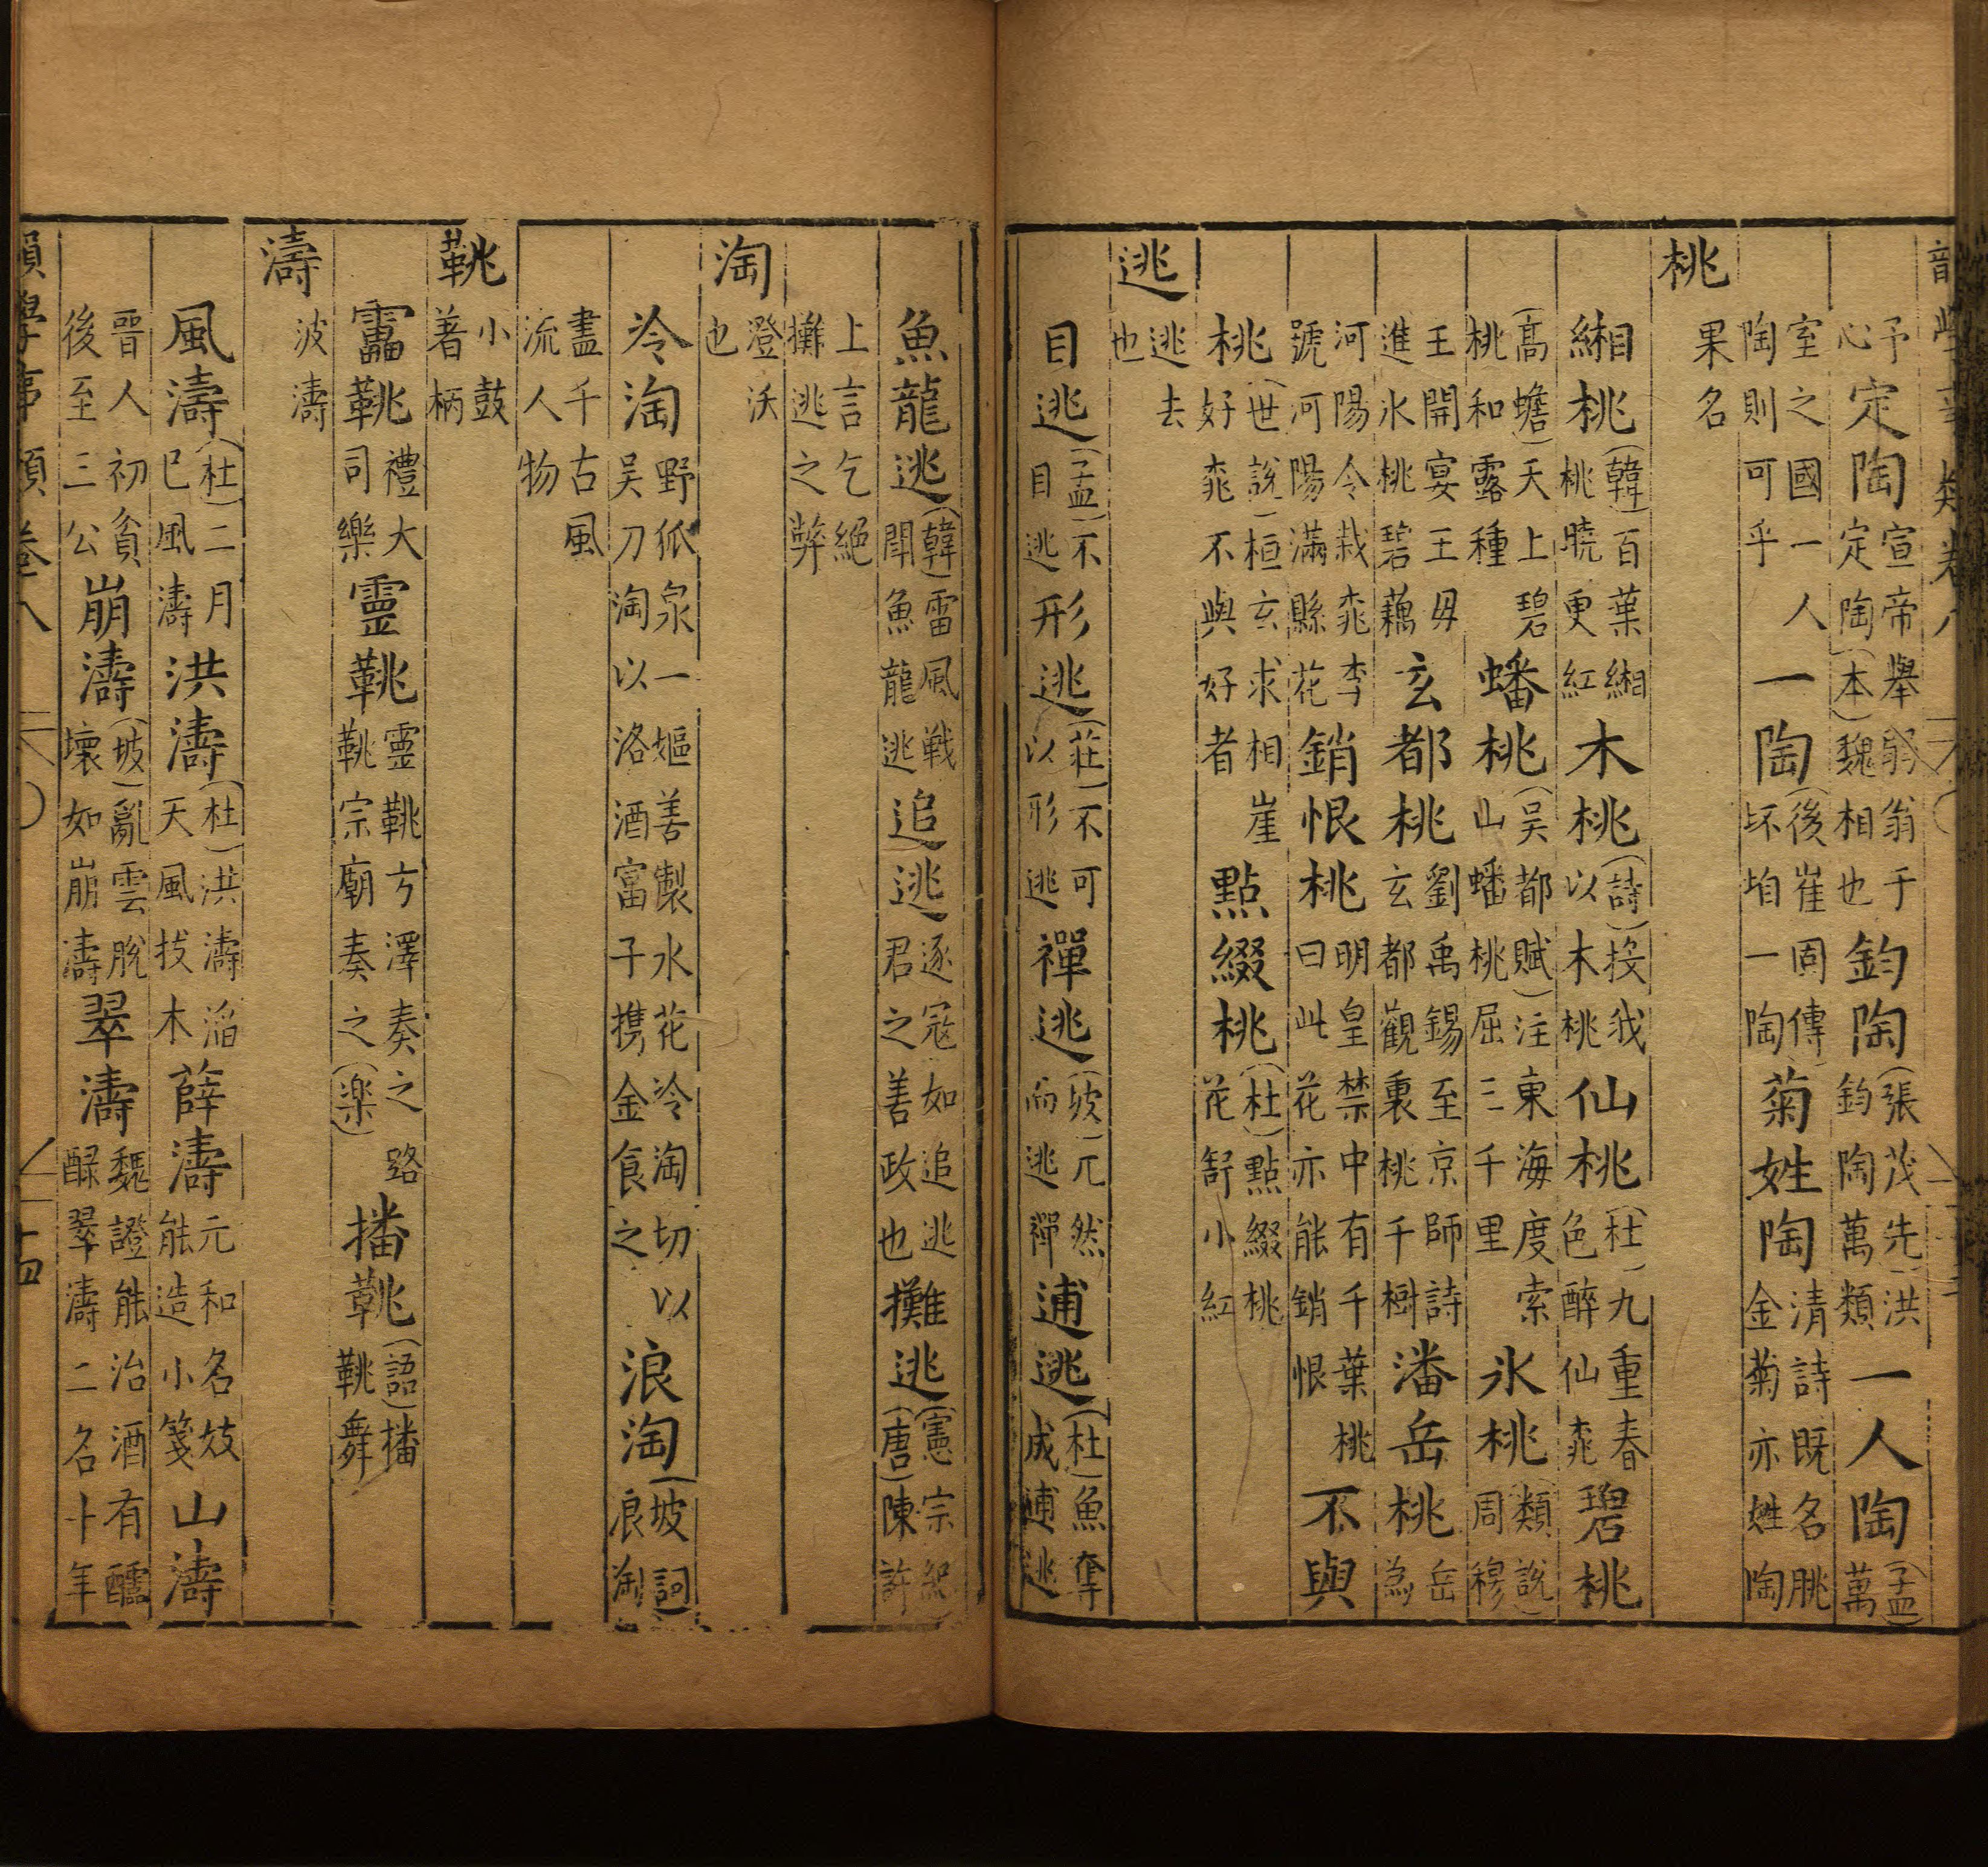 予心定陶宣帝舉弱翁于定陶(本)魏相也鈞陶(張茂先)洪鈞陶萬類一人陶(孟)萬
室之國一人陶則可乎一陶(後崔固傳)坏垍一陶菊姓陶清詩既名朓金菊亦姓陶
桃果名
緗桃(韓)百葉緗桃曉更紅木桃(詩)投我以木桃仙桃(杜)九重春色醉仙桃碧桃
(高蟾)天上碧桃和露種蟠桃(吳都賦)注東海度索山蟠桃屈三千里氷桃(類說)周穆
王開宴王母進氷桃碧藕玄都桃劉禹錫至京師詩玄都觀裏桃千樹潘岳桃岳為
河陽令栽桃李號河陽滿縣花銷恨桃明皇禁中有千葉桃曰此花亦能銷恨不與
桃(世說)桓玄求相崖好桃不與好者點綴桃(杜)點綴桃花舒小紅
逃逃去也
目逃(孟)不目逃形逃(莊)不可以形逃禪逃(坡)兀然而逃禪逋逃(杜)魚奪成逋逃
魚龍逃(韓)雷風戰鬪魚龍逃追逃逐寇如追逃君之善政也攤逃(憲宗紀)(唐)陳許
上言乞絕攤逃之弊
淘澄沃也
冷淘野狐泉一嫗善製水花冷淘切以吳刀淘以洛酒富子携金食之浪淘(坡詞)浪淘
盡千古風流人物
鞉小鼓著柄
靁鞉禮大司樂靈鞉靈鞉方澤奏之路鞉宗廟奏之(楽)播鞉(語)播鞉舞
濤波濤
風濤(杜)二月已風濤洪濤(杜)洪濤滔天風拔木薛濤元和名妓能造小箋山濤
晉人初貧後至三公崩濤(坡)亂雲脫壞如崩濤翠濤魏證能治酒有醽醁翠濤二名十年
韻學事類卷八 十四